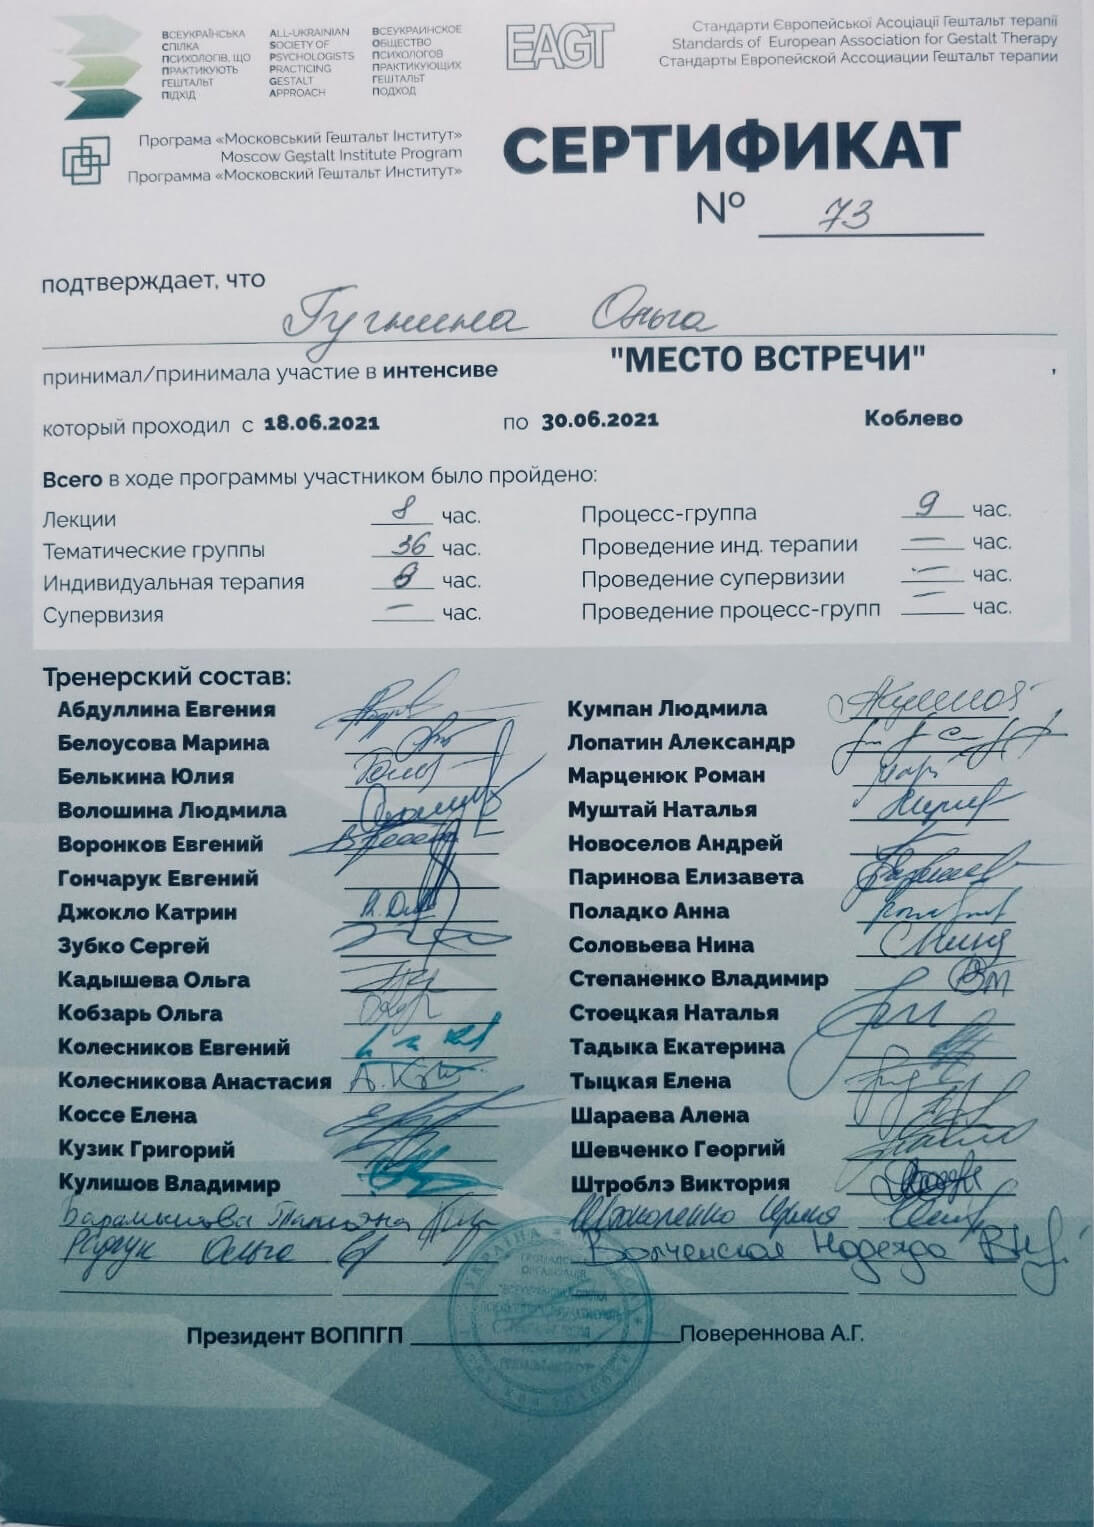 ВСЕУКРАЇНСЬКА
СПІЛКА
ПСИХОЛОГІВ, ЩО
ПРАКТИКУЮТЬ
ГЕШТАЛЬТ
ПІДХІД
ALL-UKRAINIAN
SOCIETY OF
PSYCHOLOGISTS
PRACTICING
GESTALT
APPROACH
ВСЕУКРАИНСКОЕ
ОБЩЕСТВО
ПСИХОЛОГОВ
ПРАКТИКУЮЩИХ
ГЕШТАЛЬТ
ПОДХОД
EAGT
Стандарти Європейської Асоціації Гештальт терапії
Standards of European Association for Gestalt Therapy
Стандарты Европейской Ассоциации Гештальт терапии
Програма «Московський Гештальт Інститут»
Moscow Gestalt Institute Program
Программа «Московский Гештальт Институт»
СЕРТИФИКАТ
№ 73
подтверждает, что
Гугнина Ольга
принимал/принимала участие в интенсиве "МЕСТО ВСТРЕЧИ" ,
который проходил с 18.06.2021 по 30.06.2021 Коблево
Всего в ходе программы участником было пройдено:
Лекции 8 час. Процесс-группа 9 час.
Тематические группы 36 час. Проведение инд. терапии — час.
Индивидуальная терапия час. Проведение супервизии — час.
Супервизия — час. Проведение процесс-групп — час.
Тренерский состав:
Абдуллина Евгения Кумпан Людмила
Белоусова Марина Лопатин Александр
Белькина Юлия Марценюк Роман
Волошина Людмила Муштай Наталья
Воронков Евгений Новоселов Андрей
Гончарук Евгений Паринова Елизавета
Джокло Катрин Поладко Анна
Зубко Сергей Соловьева Нина
Кадышева Ольга Степаненко Владимир
Кобзарь Ольга Стоецкая Наталья
Колесников Евгений Тадыка Екатерина
Колесникова Анастасия Тыцкая Елена
Коссе Елена Шараева Алена
Кузик Григорий Шевченко Георгий
Кулишов Владимир Штроблэ Виктория
Татьяна
Ольга Надежда
УКРАЇНА
Президент ВОППГП Повереннова А.Г.